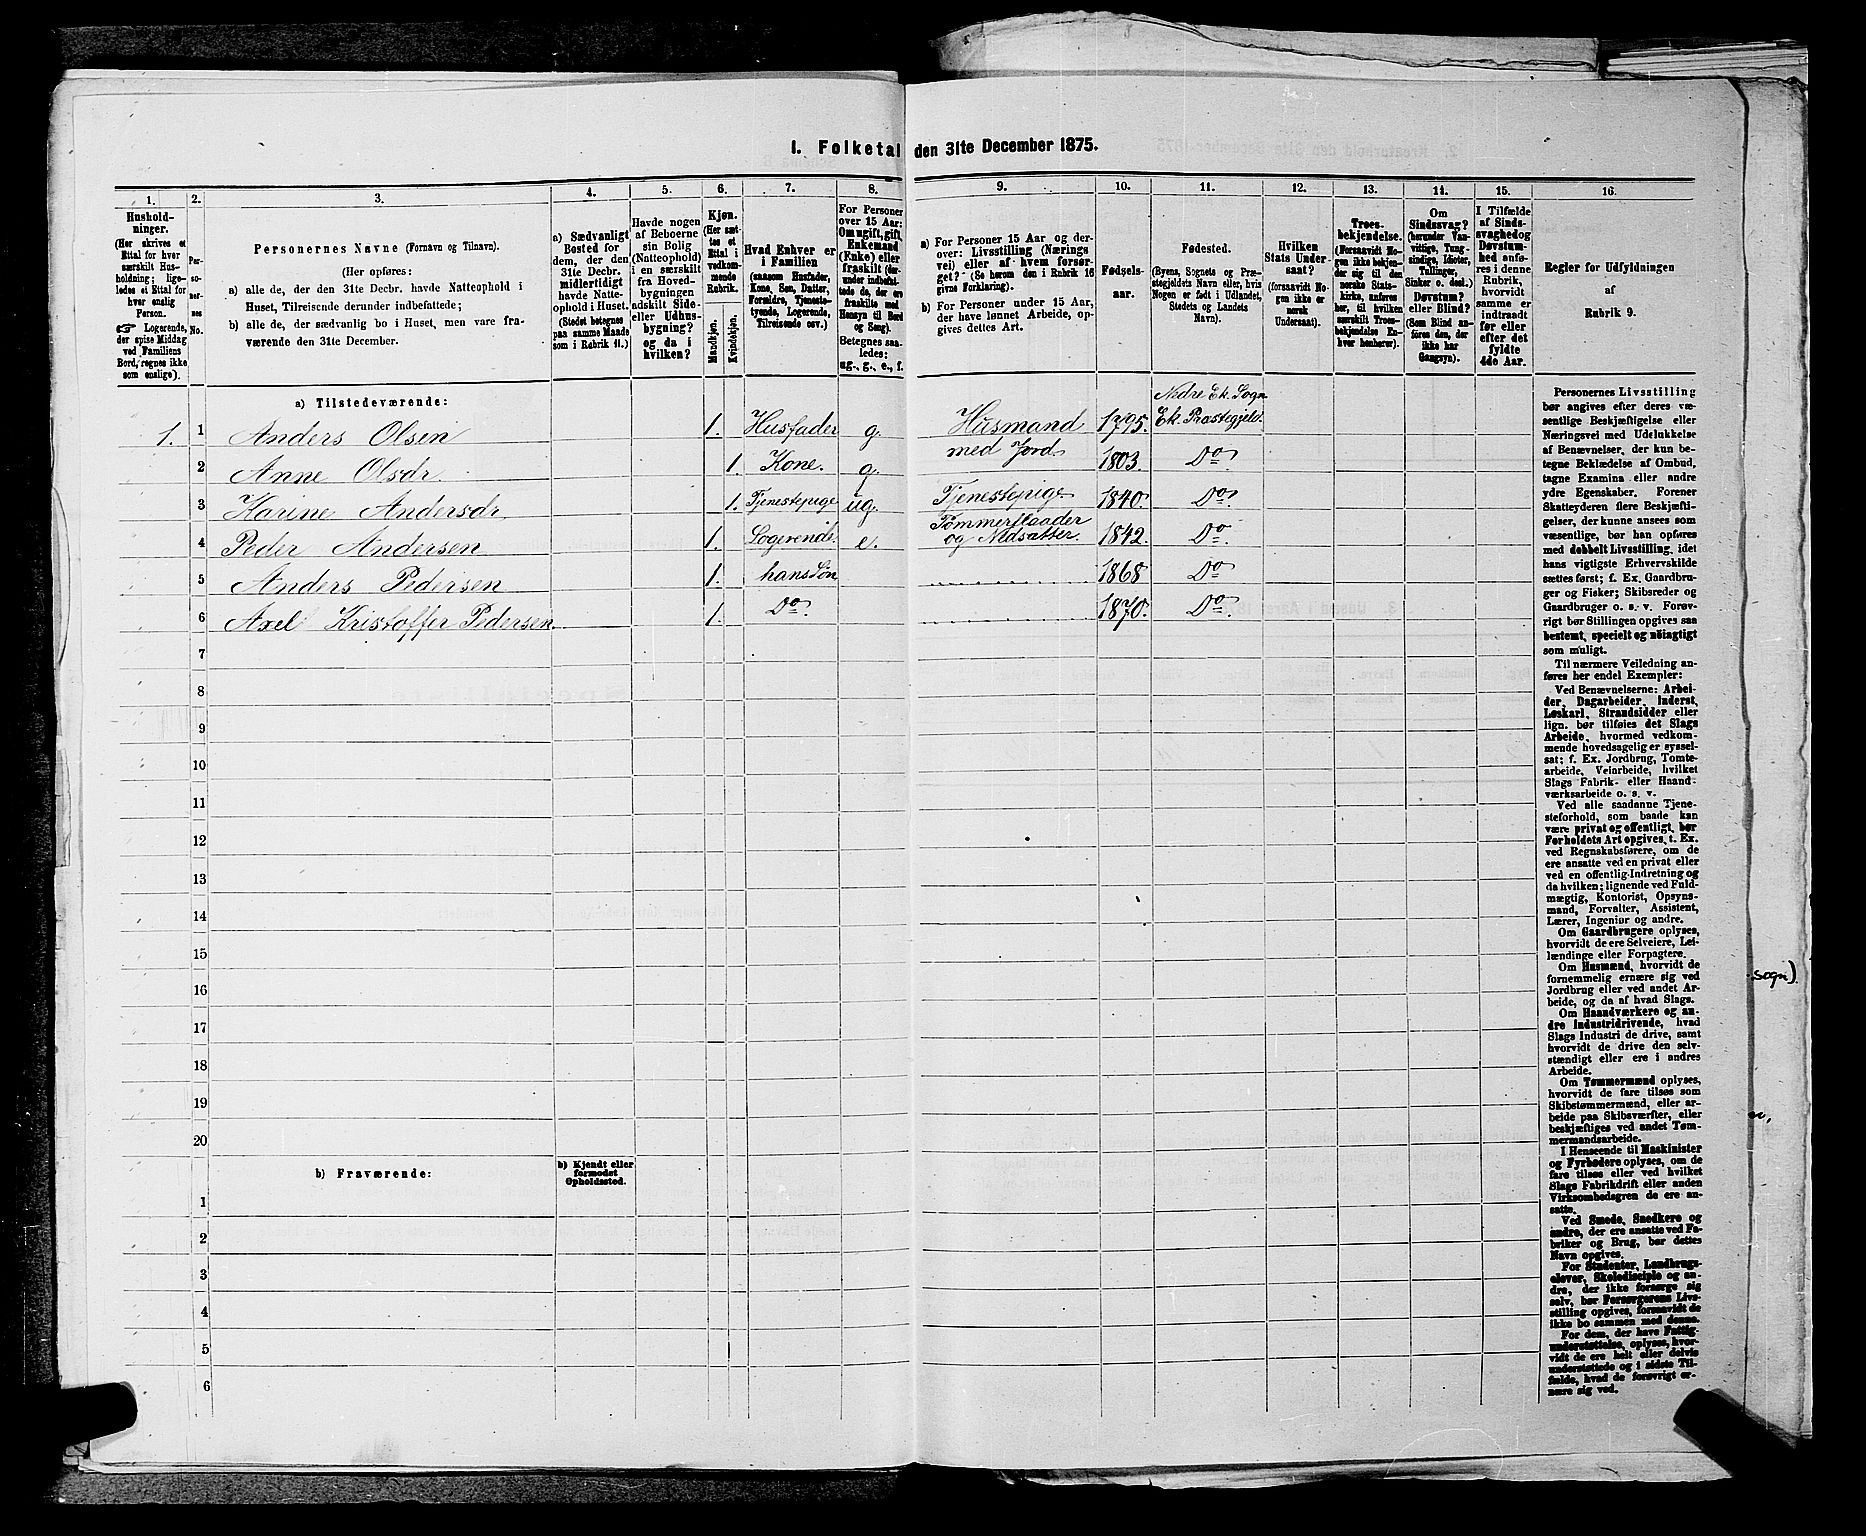 I. Folketal den 31te December 1875.
1.
2.
3.
4.
5.
6.
7.
8.
9.
10.
11.
12.
13.
14.
15.
16.
Hushold-
ninger.
(Her skrives et
Ettal for hver
særskilt Hus-
holdning; lige-
ledes et Ettal for
hver enslig
Person.
☞ Logerende,
der spise Middag
ved Familiens
Bord, regnes ikke
som enslige).
Per-
so-
ner-
nes
No.
Personernes Navne (Fornavn og Tilnavn).
(Her opføres:
a) alle de, der den 31te Decbr. havde Natteophold i
Huset, Tilreisende derunder indbefattede;
b) alle de, der sædvanlig bo i Huset, men vare fra-
værende den 31te December.
a) Sædvanligt
Bosted for
dem, der den
31te Decbr.
midlertidigt
havde Natte-
ophold i Huset.
(Stedet betegnes
paa samme Maade
som i Rubrik 11.)
Havde nogen
af Beboerne
sin Bolig
(Natteophold)
i en særskilt
fra Hoved-
bygningen
adskilt Side-
eller Udhus-
bygning?
og da i
hvilken?
Kjøn.
(Her sæt-
tes et
Ettal i
vedkom-
mende
Rubrik.
Mandkjøn.
Kvindekjøn.
Hvad Enhver er
i Familien
(saasom Husfader,
Kone, Søn, Datter,
Forældre, Tjeneste-
tyende, Logerende,
Tilreisende osv.)
For Personer
over 15 Aar:
Om ugift, gift,
Enkemand
(Enke) eller
fraskilt (der-
under indbefat-
tede de, der ere
fraskilte med
Hensyn til Bord
og Seng).
Betegnes saa-
ledes:
ug., g., e., f.
a) For Personer 15 Aar og der-
over: Livsstilling (Nærings
vei) eller af hvem forsør-
get? (Se herom den i Rubrik 16
givne Forklaring).
b) For Personer under 15 Aar,
der have lønnet Arbeide, op-
gives dettes Art.
Fødsels-
aar.
Fødested.
(Byens, Sognets og Præ-
stegjeldets Navn eller, hvis
Nogen er født i Udlandet,
Stedets og Landets
Navn).
Hvilken
Stats Under-
saat?
(forsaavidt No-
gen ikke er
norsk
Undersaat).
Troes-
bekjendelse.
(Forsaavidt No-
gen ikke bekjen-
der sig til den
norske Stats-
kirke, anføres
her, til hvilken
særskilt Troes-
bekjendelse En-
hver henhører).
Om
Sindssvag?
(herunder Van-
vittige, Tung-
sindige, Idioter,
Tullinger,
Sinker o. desl.)
Døvstum?
eller Blind?
(Som Blind an-
føres den, der
ikke har
Gangsyn).
I Tilfælde
af Sinds-
svaghed og
Døvstum-
hed anfø-
res i denne
Rubrik,
hvorvidt
samme er
indtraadt
før eller
efter det
fyldte
4de Aar.
Regler for Udfyldningen
af
Rubrik 9.
a) Tilstedeværende:
Nedre Ek. Sogn
1. 1 Anders Olsen 1. Husfader g. Husmand 1795. Ek. Præstegjeld.
2 Anne Olsdr. 1. Kone. g. med Jord. 1803. Do.
3 Karine Andersdr. 1. Tjenestepige ug. Tjenestepige. 1840. Do.
4 Peder Andersen 1. Logerende. e. Tømmerflaader
og Nedsætter. 1842. Do.
5 Anders Pedersen 1. hans Søn 1868. Do
6 Axel Kristoffer Pedersen. 1. Do. 1870. Do.
7
8
9
10
11
12
13
14
15
16
17
18
19
20
b) Fraværende:
b) Kjendt eller
formodet
Opholdssted.
1
2
3
4
5
6
Personernes Livsstilling
bør angives efter deres væ-
sentlige Beskjæftigelse eller
Næringsvei med Udelukkelse
af Benævnelser, der kun be-
tegne Beklædelse af Ombud,
tagne Examina eller andre
ydre Egenskaber. Forener
Skatteyderen flere Beskjæfti-
gelser, der kunne ansees som
væsentlige, bør han opføres
med dobbelt Livsstilling, idet
hans vigtigste Erhvervskilde
sættes først; f. Ex. Gaardbru-
ger og Fisker; Skibsreder og
Gaardbruger o. s. v. Forøv-
rigt bør Stillingen opgives saa
bestemt, specielt og nøiagtigt
som muligt.
Til nærmere Veiledning an-
føres her endel Exempler:
Ved Benævnelserne: Arbei-
der, Dagarbeider, Inderst,
Løskarl, Strandsidder eller
lign. bør tilføies det Slags
Arbeide, hvormed vedkom-
mende hovedsagelig er syssel-
sat; f. Ex. Jordbrug, Tomte-
arbeide, Veiarbeide, hvilket
Slags Fabrik- eller Haand-
værksarbeide o. s. v.
Ved alle saadanne Tjene-
steforhold, som baade kan
være privat og offentligt, bør
Forholdets Art opgives, t. Ex.
ved Regnskabsførere, om de
ere ansatte ved en privat eller
ved en offentlig Indretning og
da hvilken; lignende ved Fuld-
mægtig, Kontorist, Opsyns-
mand, Forvalter, Assistent,
Lærer, Ingeniør og andre.
Om Gaardbrugere oplyses,
hvorvidt de ere Selveiere, Lei-
lændinge eller Forpagtere.
Om Husmænd, hvorvidt de
fornemmelig ernære sig ved
Jordbrug eller ved andet Ar-
beide, og da af hvad Slags.
Om Haandværkere og an-
dre Industridrivende, hvad
Slags Industri de drive, samt
hvorvidt de drive den selv-
stændigt eller ere i andres
Arbeide.
Om Tømmermænd oplyses,
hvorvidt de fare tilsøs som
Skibstømmermænd, eller ar-
beide paa Skibsværfter, eller
beskjæftiges ved andet Tøm-
mermandsarbeide.
I Henseende til Maskinister
og Fyrbødere oplyses, om de
fare tilsøs eller ved hvilket
Slags Fabrikdrift eller anden
Virksomhedsgren de ere an-
satte.
Ved Smede, Snedkere og
andre, der ere ansatte ved Fa-
briker og Brug, bør dettes
Navn opgives.
For Studenter, Landbrugs-
elever, Skoledisciple og an-
dre, der ikke forsørge sig
selv, bør Forsørgerens Livs-
stilling opgives, forsaavidt de
ikke bo sammen med denne.
For dem, der have Fattig-
understøttelse, oplyses, hvor-
vidt de ere helt eller delvis
understøttede og i sidste Til-
fælde, hvad de forøvrigt er-
nære sig ved.
sogn).